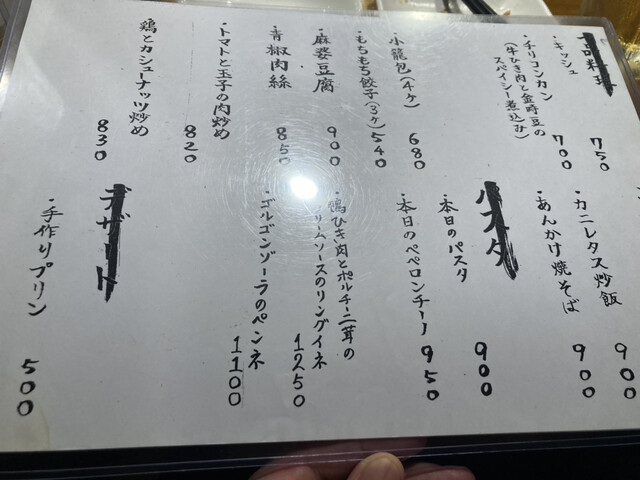 一品料理
・キッシュ 750
・チリコンカン 700
(牛ひき肉と金時豆の
スペイシー煮込み)
小籠包(4ケ) 680
・もちもち餃子(3ケ) 540
・麻婆豆腐 900
・青椒肉絲 850
・トマトと玉子の肉炒め 820
鶏とカシューナッツ炒め 830
・カニレタス炒飯 900
・あんかけ焼そば 900
パスタ
・本日のパスタ 900
・本日のペペロンチーノ 950
・鴨ひき肉とポルチーニ茸の
クリームソースのリングイネ 1250
・ゴルゴンゾーラのペンネ 1100
デザート
・手作りプリン 500